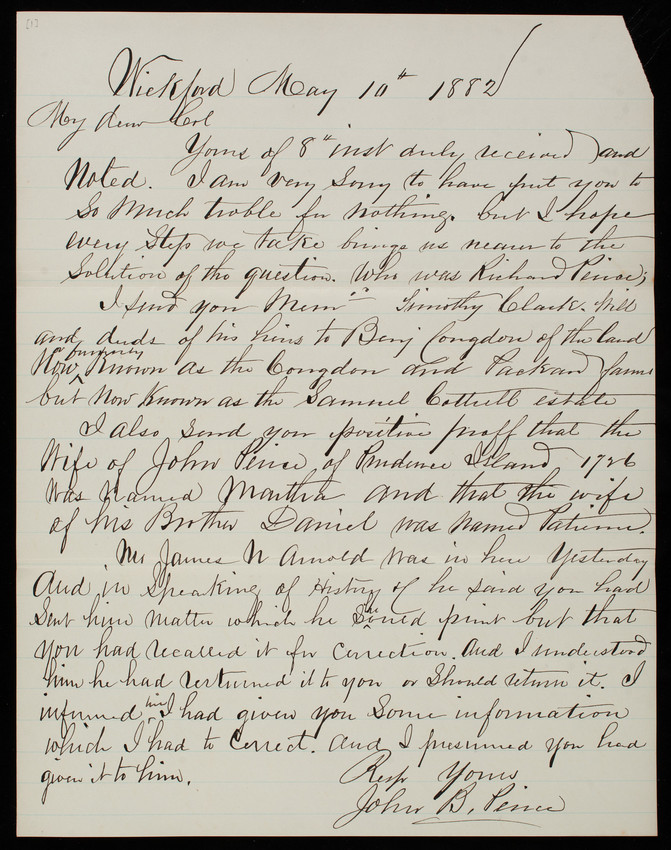 [1]
Wickford May 10th 1882
My dear Col
Yours of 8th inst duly received and
Noted. I am very Sorry to have put you to
So Much troble for Nothing. but I hope
every Step we take brings us nearer to the
Solution of the question. Who was Richard Peirce;
I send you Mem Timothy Clark. Will
and deeds of his heirs to Benj Congdon of the land
Now formerly Known as the Congdon and Packard farm
but Now Known as the Samuel Cottrell estate
I also Send you positive proff that the
Wife of John Peirce of Prudence Island 1726
Was Named Martha and that the wife
of his Brother Daniel was Named Patience.
Mr James N Arnold was in here Yesterday
And in Speaking of History & he said you had
Sent him Matter which he Should print but that
you had recalled it for Correction. And I understood
him he had returned it to you or Should return it. I
informed him I had given you Some information
which I had to Correct. And I presumed you had
given it to him.
Resp Yours
John B. Peirce